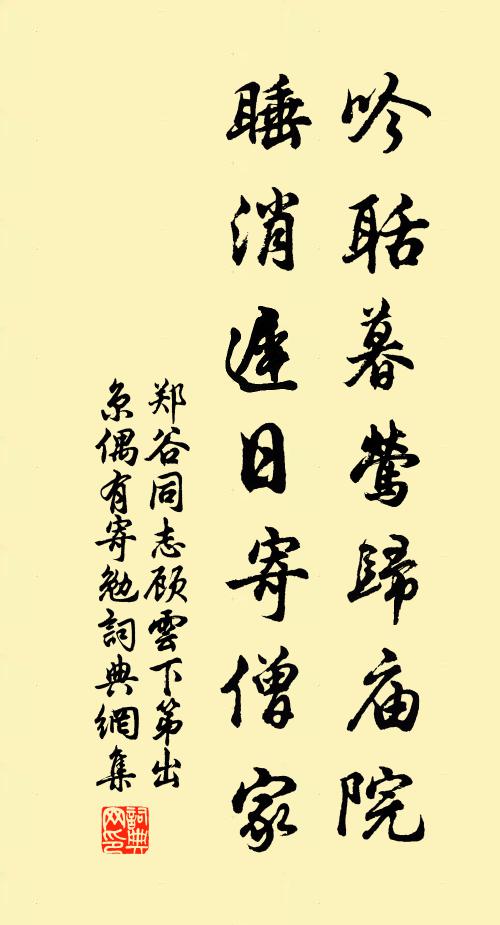 吟聒暮莺歸庙院
睡消遲日寄僧家
郑谷同志顾雲下第出
京偶有寄勉詞典網集
詞典
网印